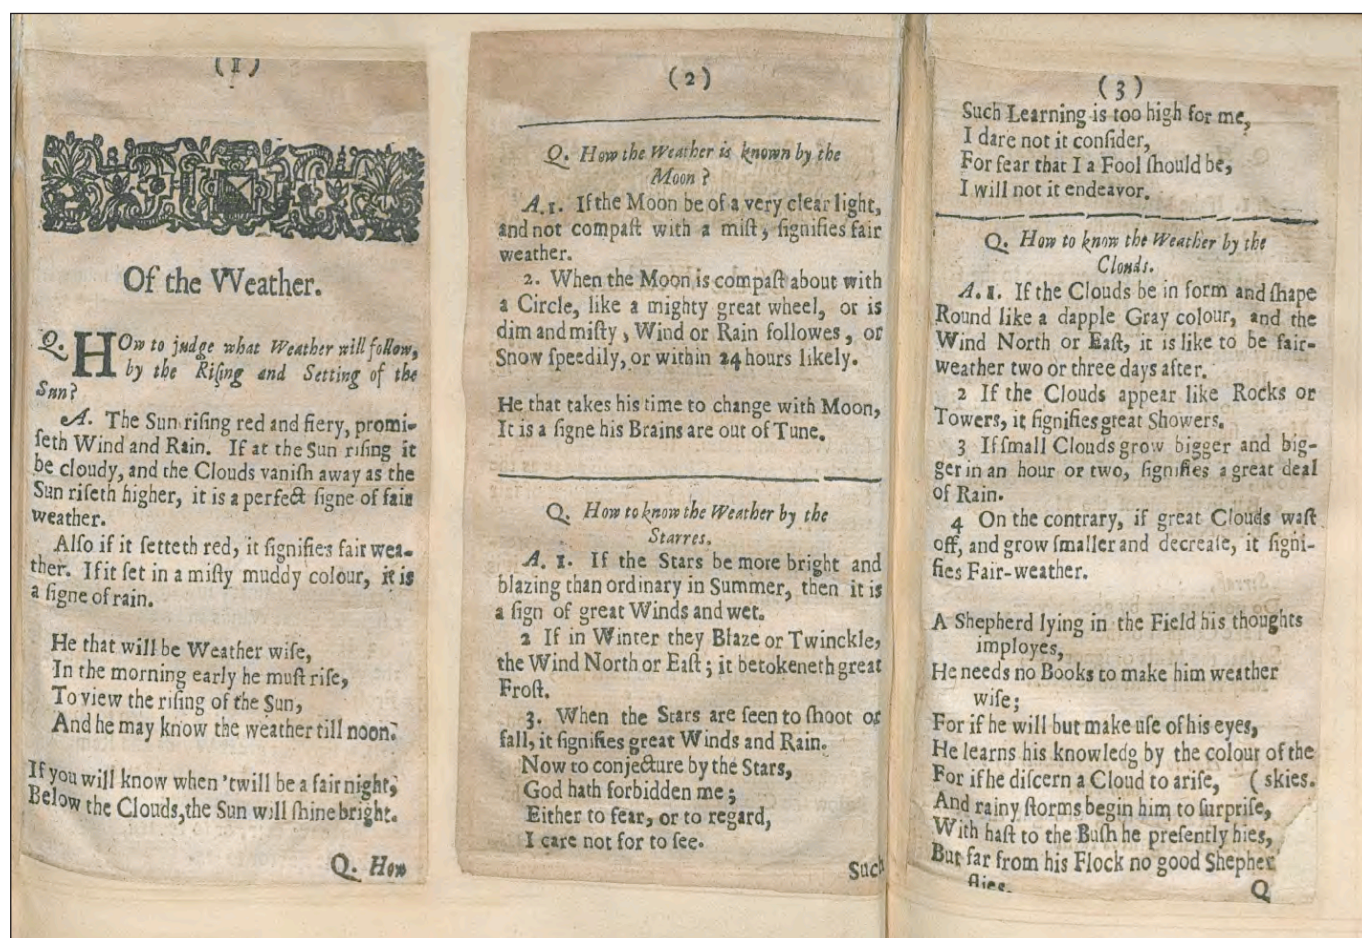 (1)
Of the VVeather.
Q. HOw to judge what Weather will follow,
by the Riſing and Setting of the
Sun?
A. The Sun riſing red and fiery, promi-
ſeth Wind and Rain. If at the Sun riſing it
be cloudy, and the Clouds vaniſh away as the
Sun riſeth higher, it is a perfect ſigne of fair
weather.
Alſo if it ſetteth red, it ſignifies fair wea-
ther. If it ſet in a miſty muddy colour, it is
a ſigne of rain.
He that will be Weather wiſe,
In the morning early he muſt riſe,
To view the riſing of the Sun,
And he may know the weather till noon.
If you will know when 'twill be a fair night,
Below the Clouds, the Sun will ſhine bright.
Q. How
(2)
Q. How the Weather is known by the
Moon?
A. 1. If the Moon be of a very clear light,
and not compaſt with a miſt, ſignifies fair
weather.
2. When the Moon is compaſt about with
a Circle, like a mighty great wheel, or is
dim and miſty, Wind or Rain followes, or
Snow ſpeedily, or within 24 hours likely.
He that takes his time to change with Moon,
It is a ſigne his Brains are out of Tune.
Q. How to know the Weather by the
Starres.
A. 1. If the Stars be more bright and
blazing than ordinary in Summer, then it is
a ſign of great Winds and wet.
2 If in Winter they Blaze or Twinckle,
the Wind North or Eaſt; it betokeneth great
Froſt.
3. When the Stars are ſeen to ſhoot or
fall, it ſignifies great Winds and Rain.
Now to conjecture by the Stars,
God hath forbidden me;
Either to fear, or to regard,
I care not for to ſee.
Such
(3)
Such Learning is too high for me,
I dare not it conſider,
For fear that I a Fool ſhould be,
I will not it endeavor.
Q. How to know the Weather by the
Clouds.
A. 1. If the Clouds be in form and ſhape
Round like a dapple Gray colour, and the
Wind North or Eaſt, it is like to be fair-
weather two or three days after.
2 If the Clouds appear like Rocks or
Towers, it ſignifies great Showers.
3 If ſmall Clouds grow bigger and big-
ger in an hour or two, ſignifies a great deal
of Rain.
4 On the contrary, if great Clouds waſt
off, and grow ſmaller and decreaſe, it ſigni-
fies Fair-weather.
A Shepherd lying in the Field his thoughts
imployes,
He needs no Books to make him weather
wiſe;
For if he will but make uſe of his eyes,
He learns his knowledg by the colour of the
For if he diſcern a Cloud to ariſe, (skies.
And rainy ſtorms begin him to ſurpriſe,
With haſt to the Buſh he preſently hies,
But far from his Flock no good Shepher
flies.
Q